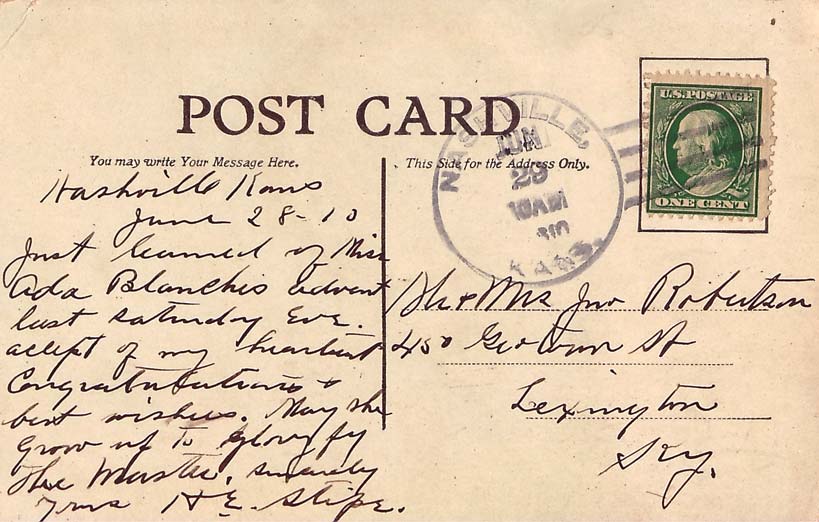 POST CARD
You may write Your Message Here.
This Side for the Address Only.
Nashville Kans
June 28-10
Just learned of Miss
Ada Blanches advent
last saturday Eve.
accept of my heartiest
Congratulations &
best wishes. May she
grow up to glorify
the Master. sincerely
yours H E. Stipe.
NASHVILLE,
JUN
29
10AM
910
KANS.
U.S. POSTAGE
ONE CENT
Mr & Mrs Jno Robertson
450 Geotown St
Lexington
Ky.